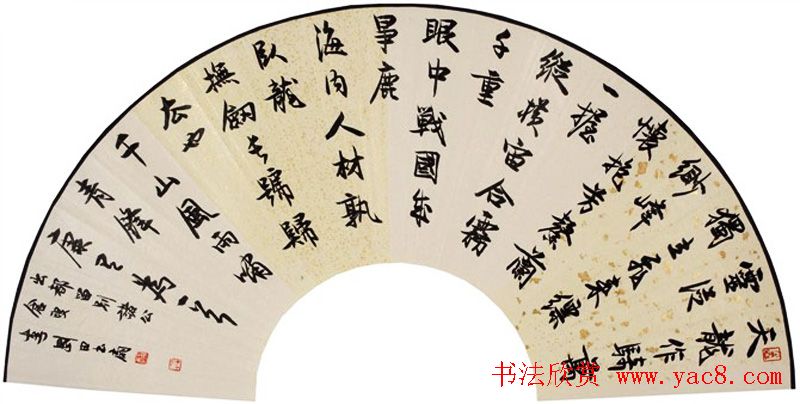 天龍作騎萬
靈從
獨立飛來縹
緲峰
懷抱芳馨蘭
一握
縱橫宙合霧
千重
眼中戰國成
爭鹿
海內人材孰
臥龍
撫劍長號歸
去也
千山風雨嘯
青鋒
康有為
出都留別諸公
书法欣赏 www.yac8.com